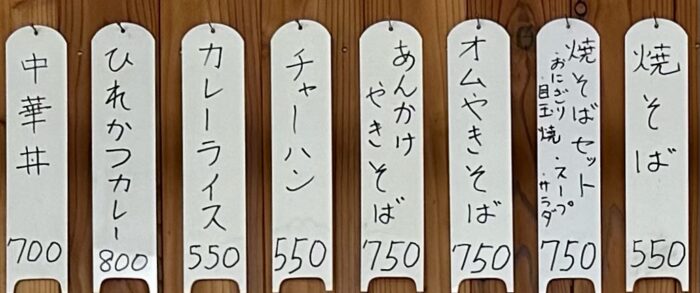 焼そば
550
焼そばセット
・おにぎり・スープ
・目玉焼・サラダ
750
オムやきそば
750
あんかけ
やきそば
750
チャーハン
550
カレーライス
550
ひれかつカレー
800
中華丼
700